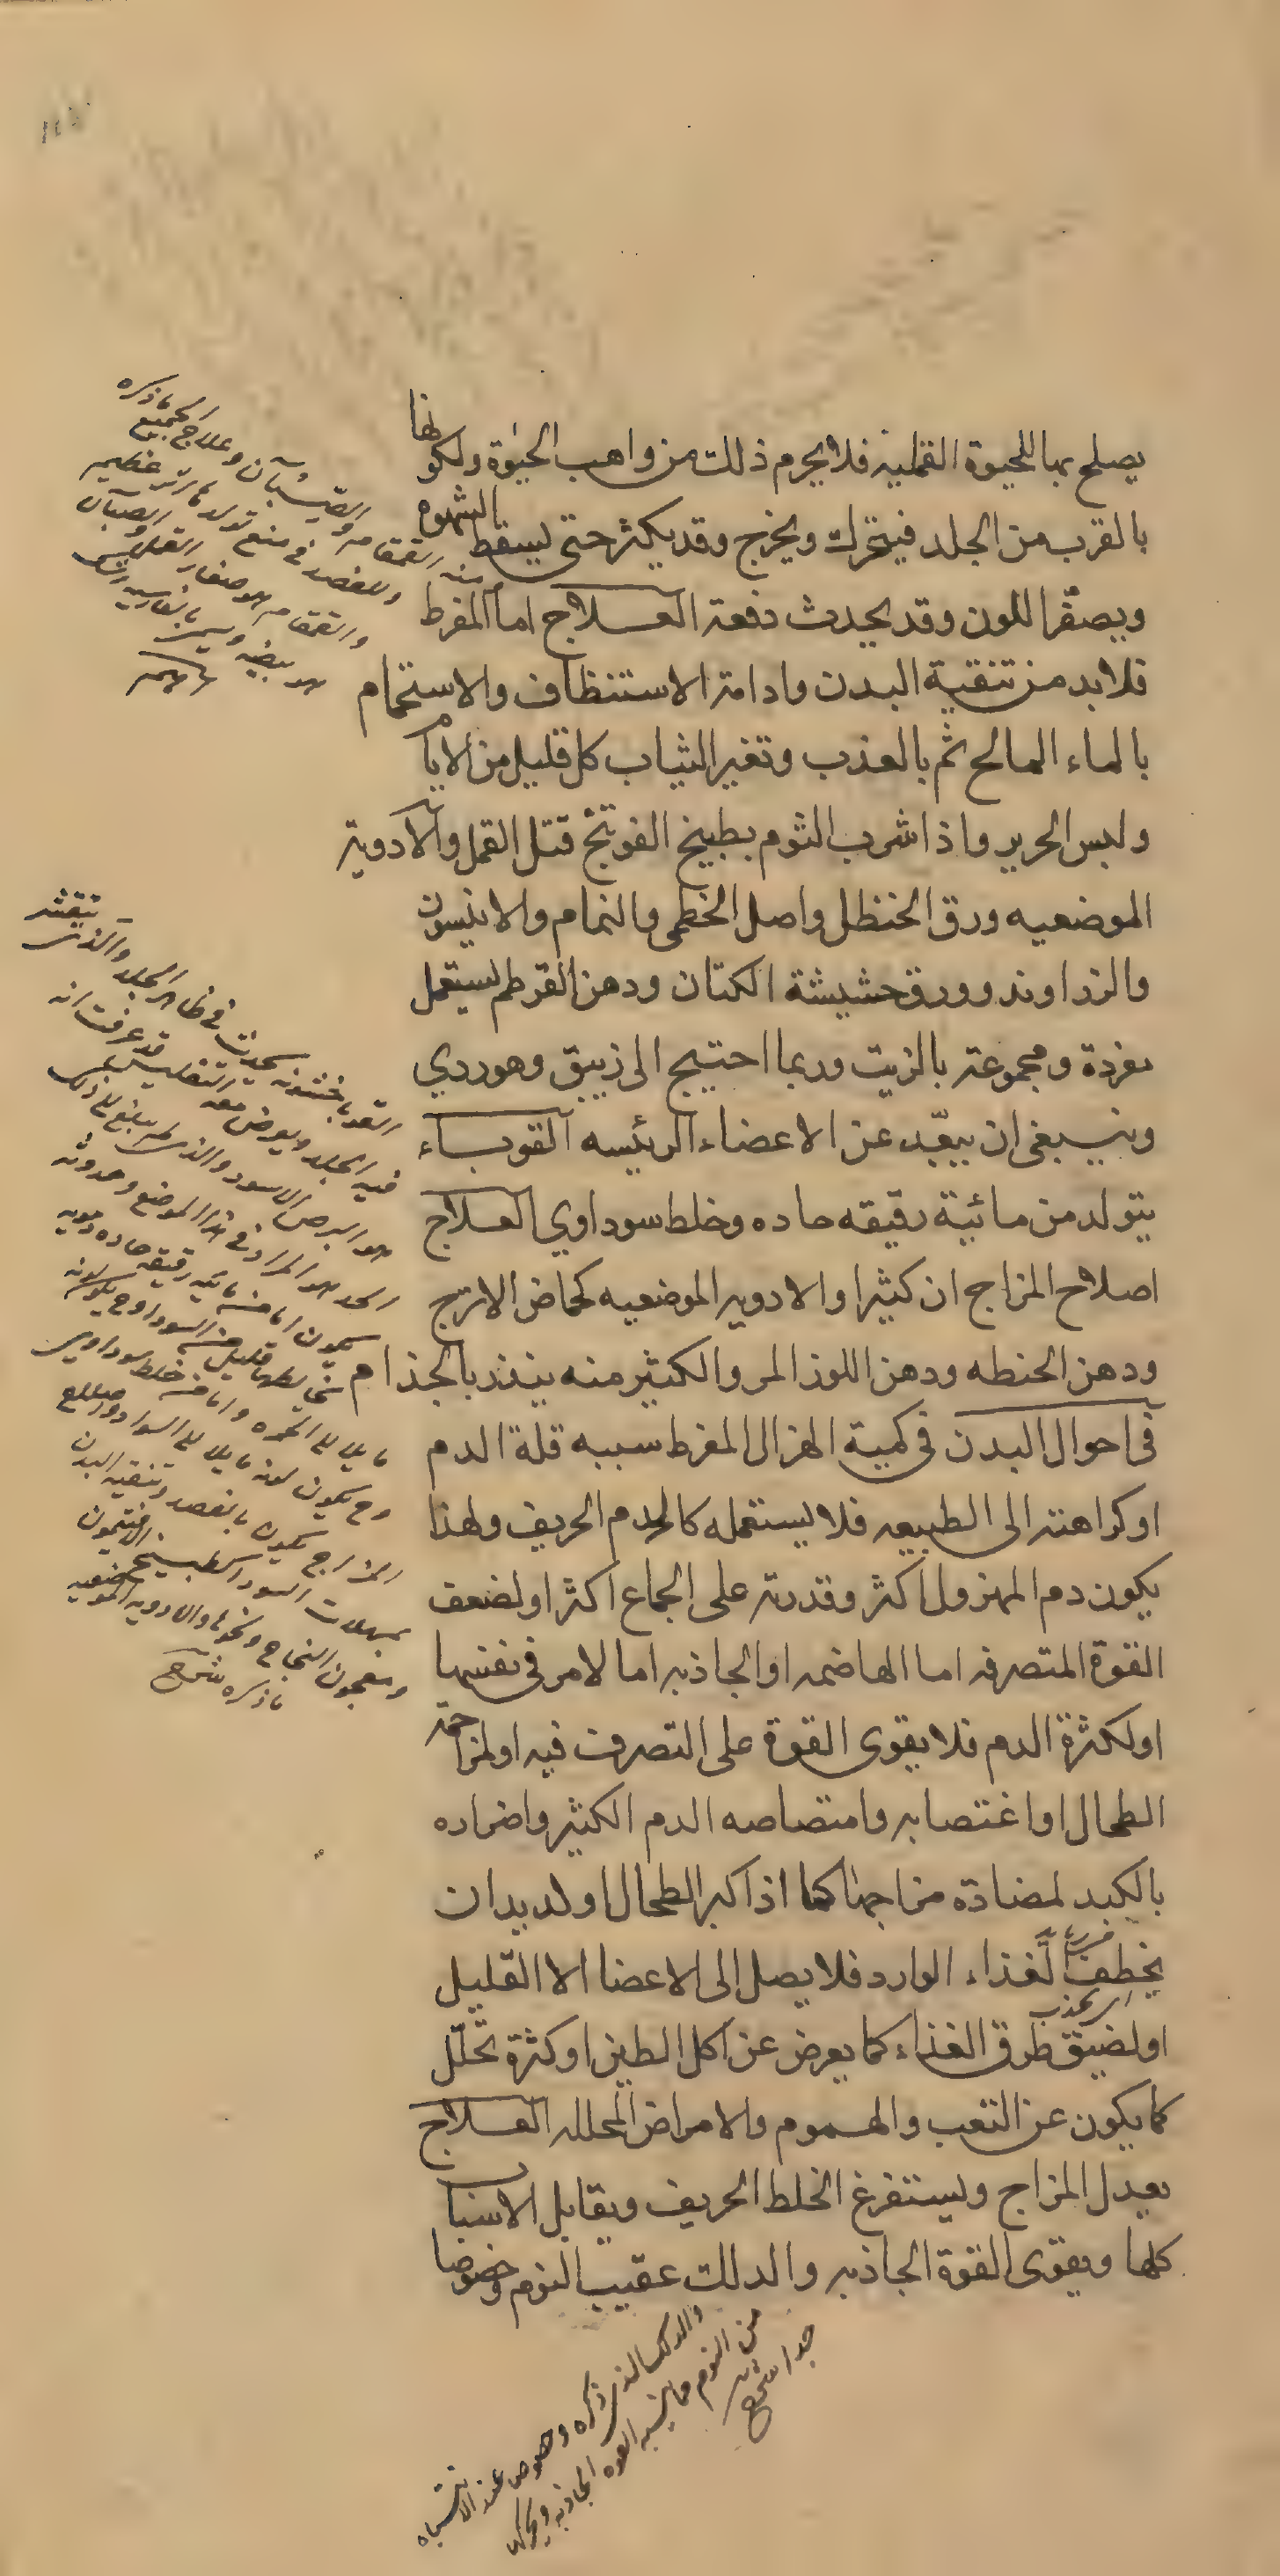 يصلح بها للحيوة القملية فلا يحرم ذلك من واهب الحيوة ولكونها
بالقرب من الجلد فيتحرك ويخرج وقد يكثر حتى يسقط الشهوه
ويصفّر اللون وقد يحدث دفعة العلاج اما المفرط
فلا بد من تنقية البدن وادامة الاستنظاف والاستحمام
بالماء المالح ثم بالعذب وتغير الثياب كل قليل من الايام
ولبس الحرير واذا شرب الثوم بطبيخ الفوتنج قتل القمل والادوية
الموضعيه ورق الحنظل واصل الخطمى والنمام والانيسون
والزراوند وورق حشيشة الكتان ودهن القرطم يستعمل
مفردة ومجموعة بالزيت وربما احتيج الى زيبق وهو ردي
وينبغى ان يبعّد عن الاعضاء الرئيسه القوباء
يتولد من مائية رقيقه حاده وخلط سوداوي العلاج
اصلاح المزاج ان كثير والادويه الموضعيه كحماض الاترج
ودهن الحنطه ودهن اللوز المر والكثير منه ينذر بالجذام
فى احوال البدن فى كمية الهزال المفرط سببه قلة الدم
او كراهته الى الطبيعه فلا يستعمله كالدم الحريف ولهذا
يكون دم المهزول اكثر وقدرته على الجماع اكثر او لضعف
القوة المتصرفه اما الهاضمه او الجاذبه اما لامر فى نفسها
او لكثرة الدم فلا يقوى القوة على التصرف فيه او لمزاحمة
الطحال او اغتصابه وامتصاصه الدم الكثير واضراره
بالكبد لمضادة مزاجها كما اذا كبر الطحال او لديدان
يخطف الغذاء الوارد فلا يصل الى الاعضا الا القليل
اى يجذب
او لضيق طرق الغذاء كما يعرض عن اكل الطين او كثرة تحلّل
كما يكون عن التعب والهموم والامراض المحلله العلاج
يعدل المزاج ويستفرغ الخلط الحريف ويقابل الاسباب
كلها ويقوى القوة الجاذبه والدلك عقيب النوم وخصوصا
منه القمقامه والصئبان وعلاج الجميع ما ذكره
وللفصد فى منع تولده تاثير عظيم
والقمقامه هو صغار القمل والصيبان
هو بيضه ويسمى بالفارسيه
القوبا خشونه يحدث فى ظاهر الجلد والذى يتقشر
فيه الجلد ويعرض معه التفليس قد عرفت انه
هو البرص الاسود والذى لم يبلغ الى ذلك
الحد هو المراد فى هذا الموضع وحدوثه
يكون اما من مائيه رقيقه حاده دمويه
يخالطها قليل من السودا وح يكون لونه
مايلا الى الحمره واما من خلط سوداوى
وح يكون لونه مايلا الى السواد واصلاح
المزاج يكون بالفصد وتنقيه البدن
بمسهلات السودا كطبيخ الافتيمون
ومعجون النجاح ونحوها والادويه الموضعيه
ما ذكره شرح
والدلك الذى ذكره وخصوص عند الانتباه
من النوم فما ينبه القوه الجاذبه ويحركها
جدا شرح